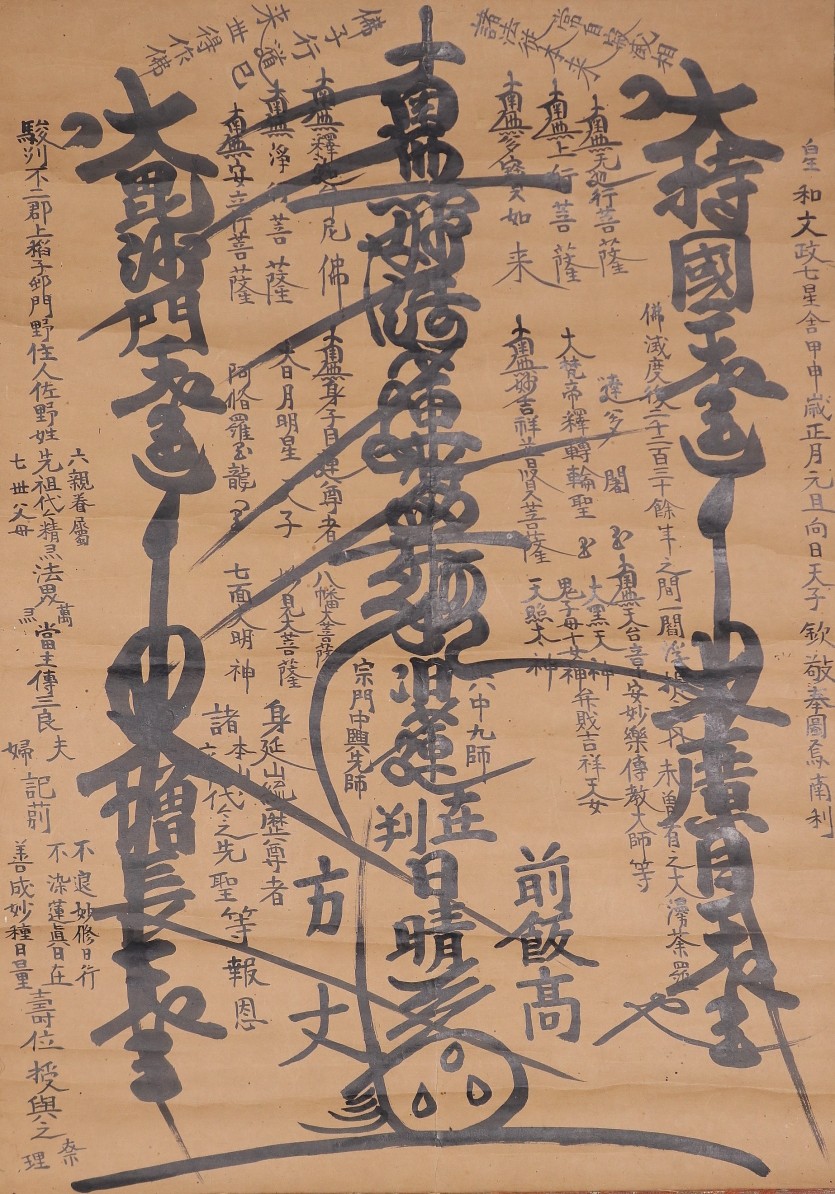 諸法従本来
常自寂滅相
佛子行道已
来世得作佛
皇和文政七星舎甲申歳正月元旦向日天子欽敬奉圖焉南利
大持國天王
大廣目天王
佛滅度後二千二百三十餘年之間一閻浮提之内未曽有之大漫荼羅也
南無无邉行菩薩
南無上行菩薩
南無多宝如来
南無妙法蓮華経
南無釋迦牟尼佛
南無浄行菩薩
南無安立行菩薩
大毘沙門天王
大梵帝釋轉輪聖王
南無妙吉祥普賢菩薩
南無身子目連尊者
大日月明星天子
阿脩羅王龍王
南無天台章安妙樂傳教大師等
大黒天神
鬼子母十女神
弁財吉祥天女
天照太神
八幡大菩薩
妙見大菩薩
七面大明神
六中九師
日蓮
在判
宗門中興先師
身延山統歴尊者
諸本山代々之先聖等報恩
大増長天王
前飯髙
日晴
方丈
駿州不二郡上稲子邨門野住人佐野姓先祖代々精霊法界萬霊當主傳三良夫婦記莂
六親眷屬
七世父母
不退妙修日行
不染蓮眞日在
善成妙種日量
壽位
授與之